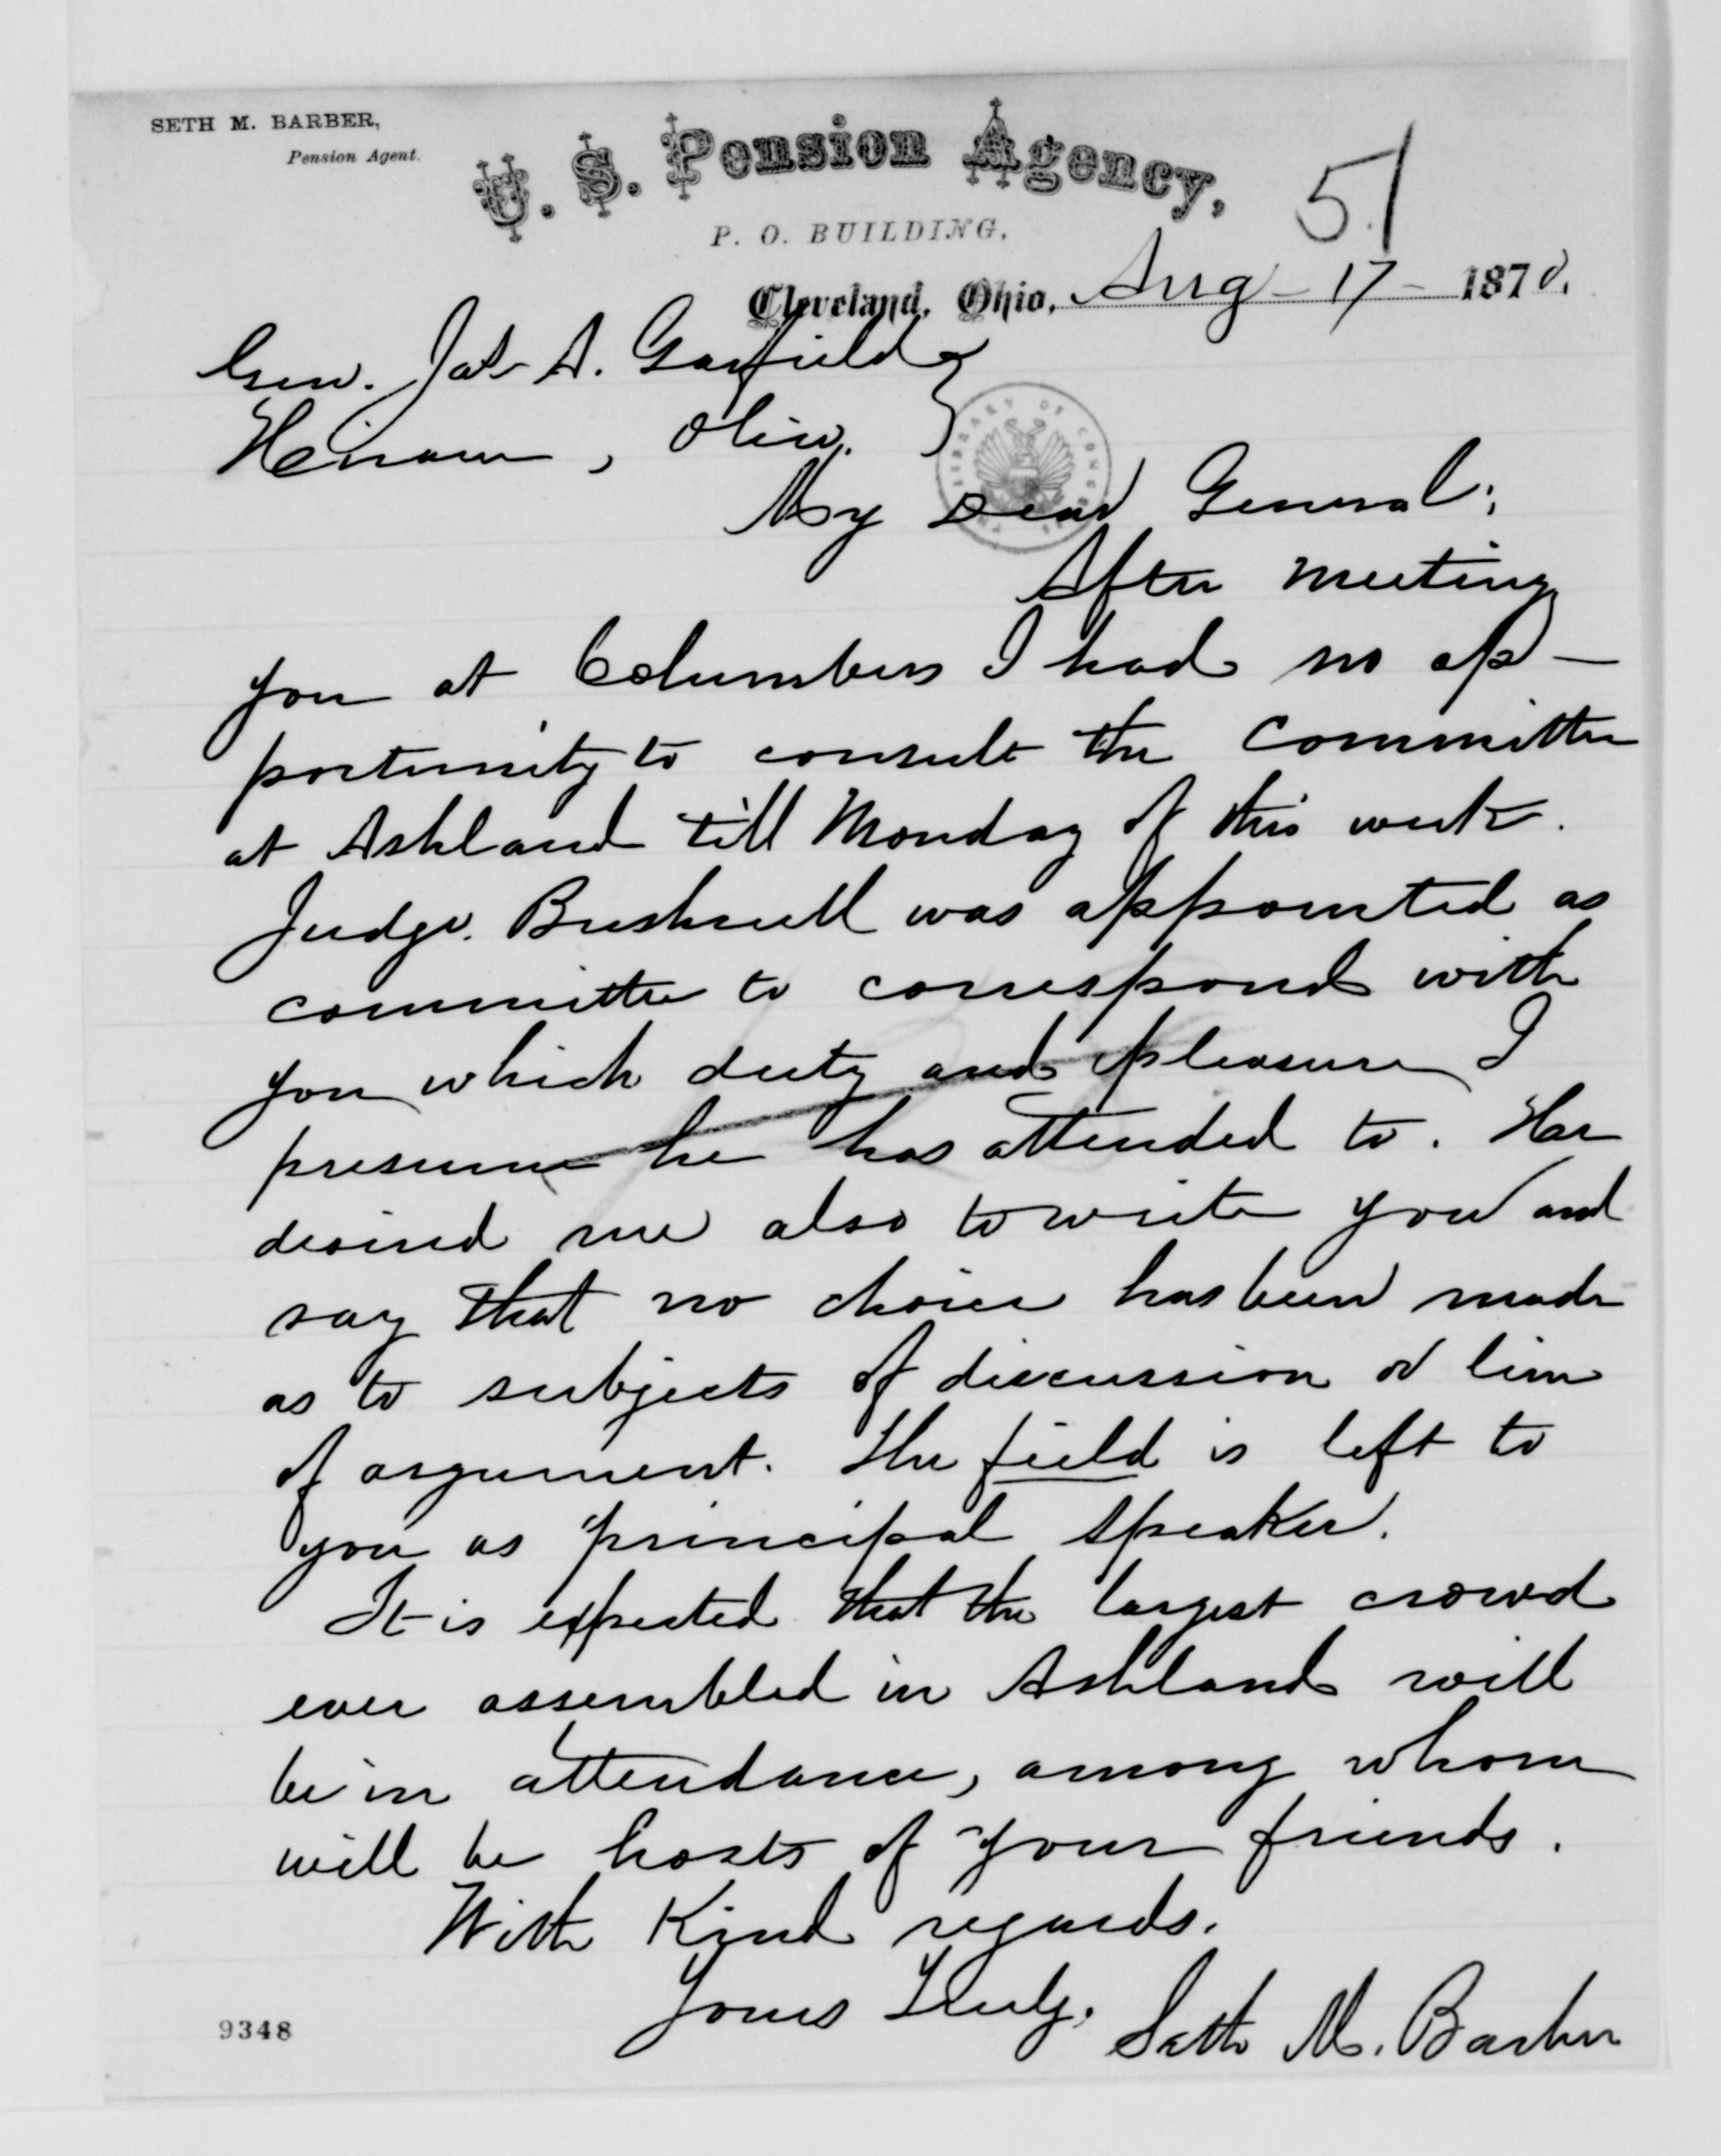 SETH M. BARBER,
Pension Agent.
U. S. Pension Agency,
P. O. BUILDING,
51
Cleveland, Ohio, Aug - 17 - 1870.
Gen. Jas A. Garfield
Hiram, Ohio.
THE LIBRARY OF CONGRESS
My Dear General;
After meeting
you at Columbus I had no op-
portunity to consult the Committee
at Ashland till Monday of this week.
Judge. Bushnell was appointed as
committee to correspond with
you which duty and pleasure I
presume he has attended to. He
desired me also to write you and
say that no choice has been made
as to subjects of discussion or line
of argument. The field is left to
you as principal speaker.
It is expected that the largest crowd
ever assembled in Ashland will
be in attendance, among whom
will be hosts of your friends.
With Kind regards.
Yours Truly,
Seth M. Barber
9348